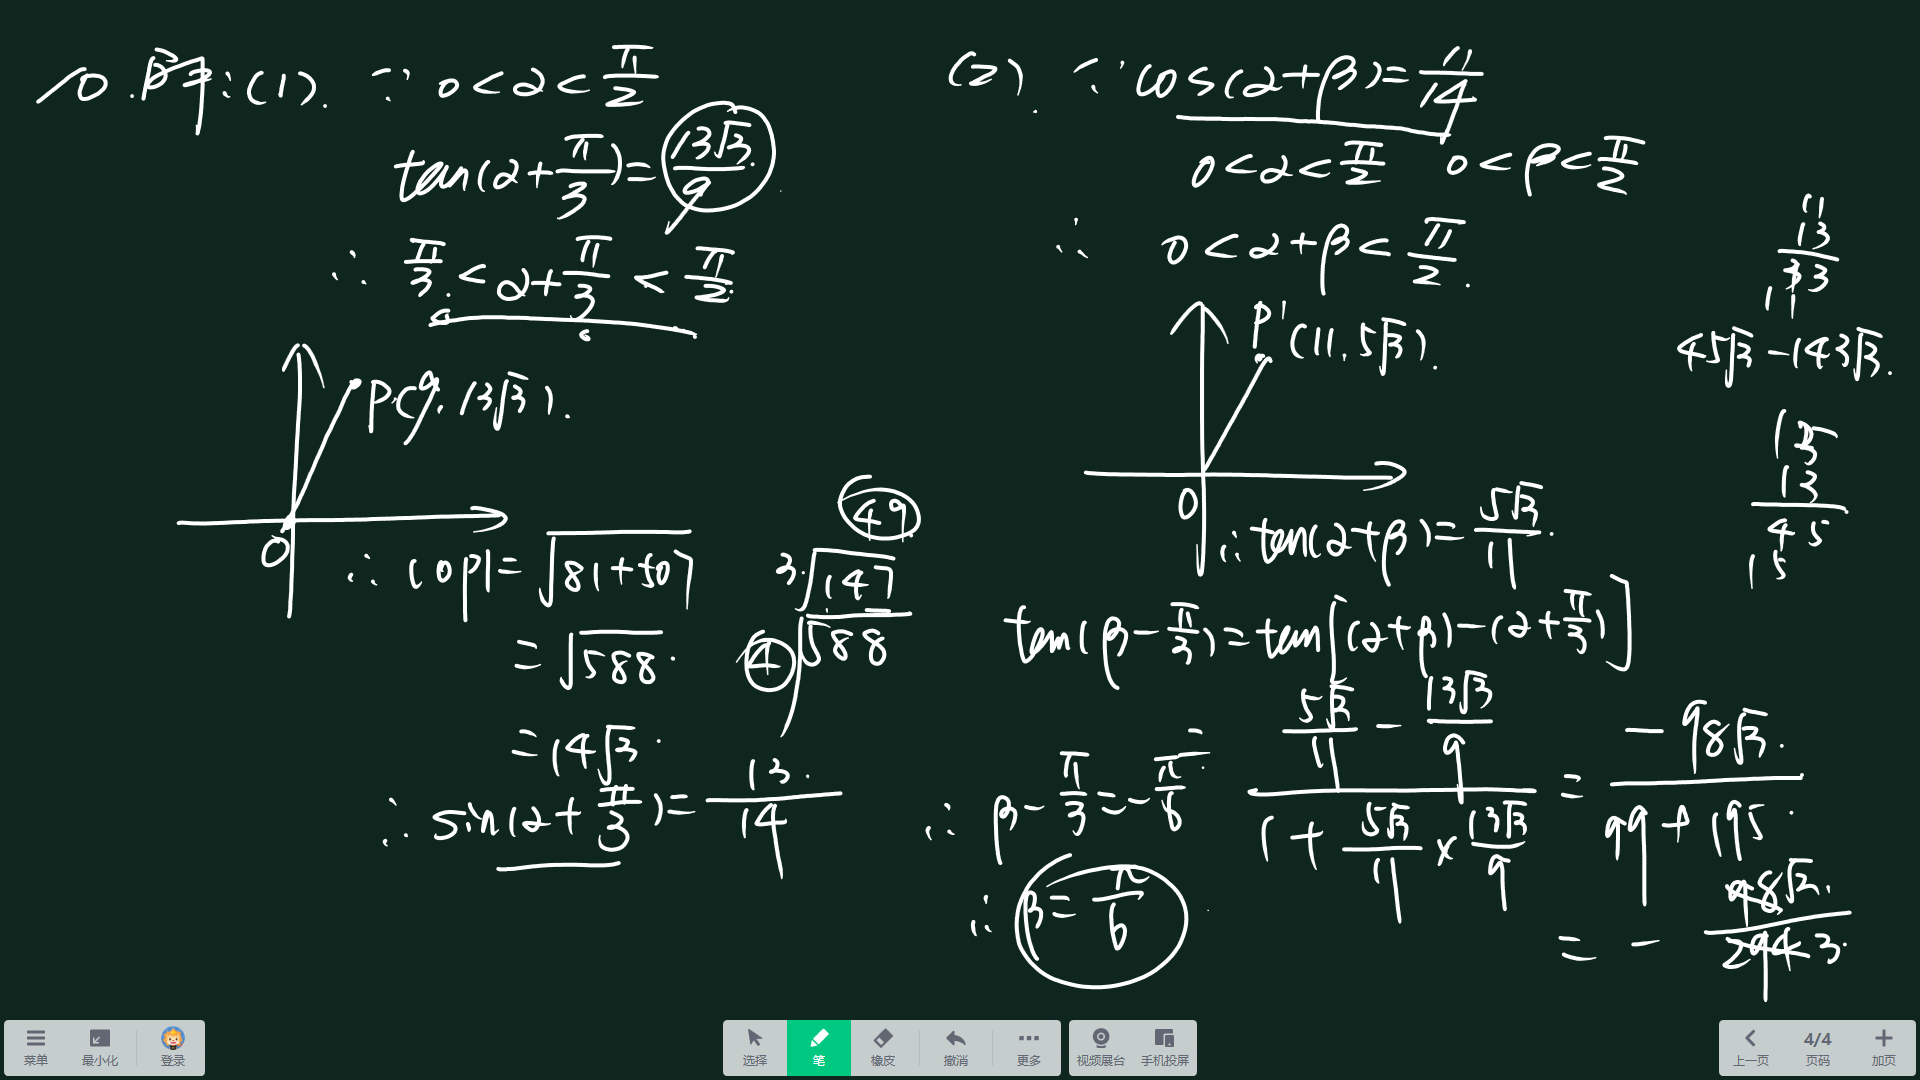 10.解:(1). ∵ 0<α<π/2
tan(α+π/3)=13√3/9
∴ π/3<α+π/3<π/2
P(9,13√3).
O
∴ |OP|=√81+507
=√588.
=14√3.
49
3√147
4√588
∴ sin(α+π/3)=13/14
(2). ∵ cos(α+β)=11/14
0<α<π/2 0<β<π/2
∴ 0<α+β<π/2.
P'(11,5√3).
O
∴tan(α+β)=5√3/11.
tan(β-π/3)=tan[(α+β)-(α+π/3)]
= (5√3/11 - 13√3/9)/(1+5√3/11×13√3/9) = -98√3/(99+195).
= - 98√3/294 3.
∴ β-π/3=-π/6
∴ β=π/6
11
13
33
11
45√3-143√3.
15
13
45
15
菜单
最小化
登录
选择
笔
橡皮
撤消
更多
视频展台
手机投屏
上一页
4/4
页码
加页